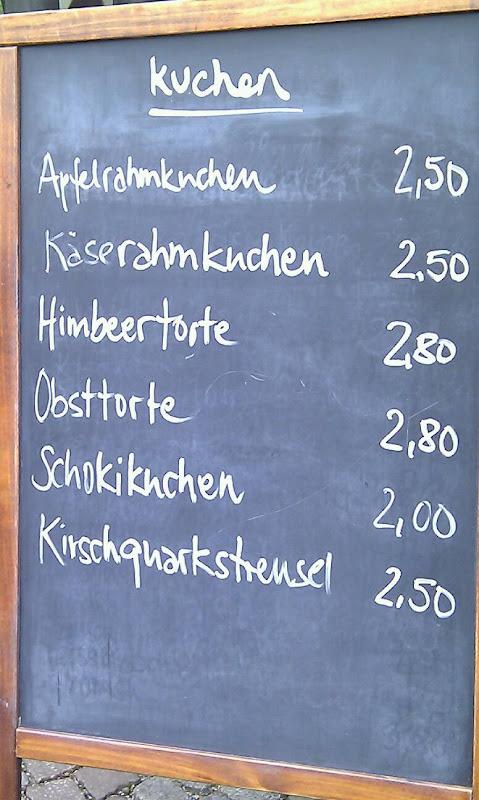 Kuchen
Apfelrahmkuchen 2,50
Käserahmkuchen 2,50
Himbeertorte 2,80
Obsttorte 2,80
Schokikuchen 2,00
Kirschquarkstreusel 2,50